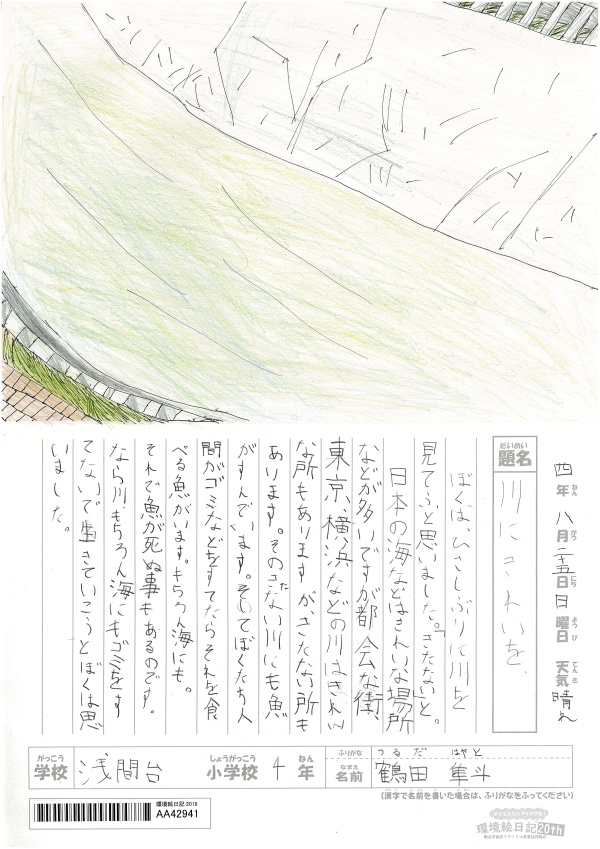 四年 八月 二五日 日曜日 天気 晴れ
ねん がつ にち ようび てんき
だいめい
題名
川にきれいを
ぼくは、ひさしぶりに川を
見てふと思いました。「きたない」と。
日本の海などはきれいな場所
などが多いですが都会な街、
東京、横浜などの川はきれい
な所もありますが、きたない所も
あります。そのきたない川にも魚
がすんでいます。そしてぼくたち人
間がゴミなどをすてたらそれを食
べる魚がいます。もちろん海にも。
それで魚が死ぬ事もあるのです。
なら川、もちろん海にもゴミをす
てないで生きていこうとぼくは思
いました。
がっこう しょうがっこう ねん
学校 浅間台 小学校 4年
ふりがな つるだ はやと
なまえ
名前 鶴田 隼斗
(漢字で名前を書いた場合は、ふりがなをふってください)
環境絵日記 2019
AA42941
環境絵日記20th